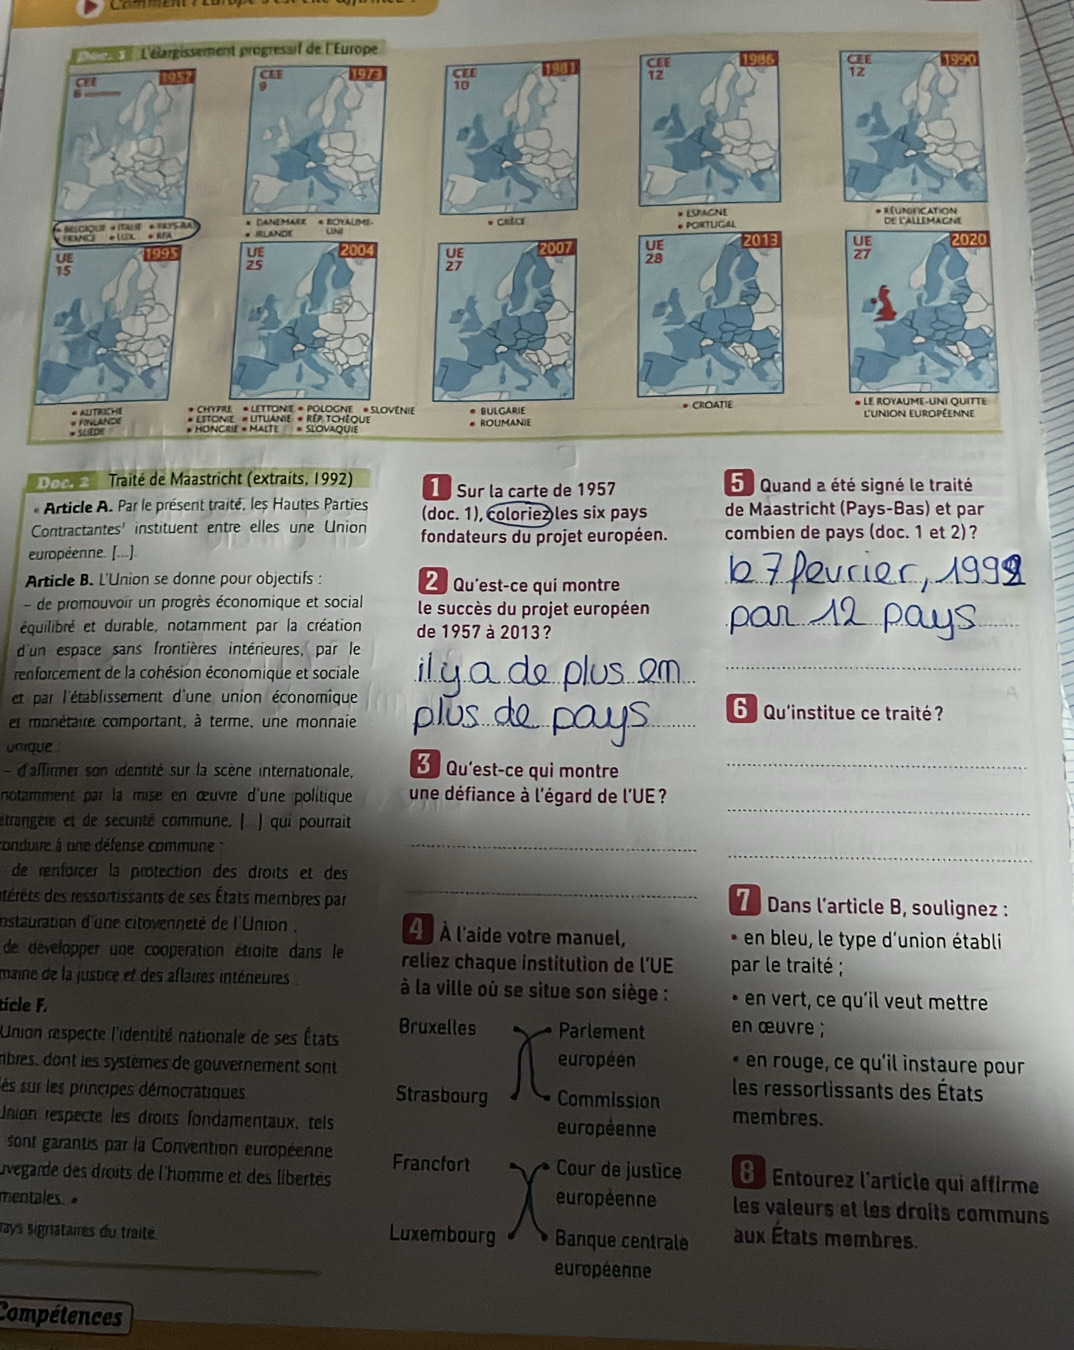 Doc. 1 L'élargissement progressif de l'Europe
CEE 1957
6
CEE 1973
9
CEE 1981
10
CEE 1986
12
CEE 1990
12
• BELGIQUE • ITALIE • PAYS-BAS
FRANCE • LUX. • RFA
• DANEMARK • ROYAUME-
• IRLANDE UNI
• GRÈCE
• ESPAGNE
• PORTUGAL
• RÉUNIFICATION
DE L'ALLEMAGNE
UE 1995
15
UE 2004
25
UE 2007
27
UE 2013
28
UE 2020
27
• AUTRICHE
• FINLANDE
• SUÈDE
• CHYPRE • LETTONIE • POLOGNE • SLOVÉNIE
• ESTONIE • LITUANIE • RÉP. TCHÈQUE
• HONGRIE • MALTE • SLOVAQUIE
• BULGARIE
• ROUMANIE
• CROATIE
• LE ROYAUME-UNI QUITTE
L'UNION EUROPÉENNE
Doc. 2 Traité de Maastricht (extraits, 1992)
« Article A. Par le présent traité, les Hautes Parties
Contractantes¹ instituent entre elles une Union
européenne. [...].
Article B. L'Union se donne pour objectifs :
– de promouvoir un progrès économique et social
équilibré et durable, notamment par la création
d'un espace sans frontières intérieures, par le
renforcement de la cohésion économique et sociale
et par l'établissement d'une union économique
et monétaire comportant, à terme, une monnaie
unique ;
– d'affirmer son identité sur la scène internationale,
notamment par la mise en œuvre d'une politique
étrangère et de sécurité commune, [...] qui pourrait
conduire à une défense commune ;
de renforcer la protection des droits et des
térêts des ressortissants de ses États membres par
nstauration d'une citoyenneté de l'Union ;
de développer une coopération étroite dans le
maine de la justice et des affaires intérieures.
ticle F.
Union respecte l'identité nationale de ses États
mbres, dont les systèmes de gouvernement sont
és sur les principes démocratiques.
Union respecte les droits fondamentaux, tels
sont garantis par la Convention européenne
uvegarde des droits de l'homme et des libertés
mentales. »
ays signataires du traité.
Compétences
1 Sur la carte de 1957
(doc. 1), coloriez les six pays
fondateurs du projet européen.
2 Qu'est-ce qui montre
le succès du projet européen
de 1957 à 2013 ?
il y a de plus en
plus de pays
3 Qu'est-ce qui montre
une défiance à l'égard de l'UE ?
4 À l'aide votre manuel,
reliez chaque institution de l'UE
à la ville où se situe son siège :
Bruxelles • • Parlement
européen
Strasbourg • • Commission
européenne
Francfort • • Cour de justice
européenne
Luxembourg • • Banque centrale
européenne
5 Quand a été signé le traité
de Maastricht (Pays-Bas) et par
combien de pays (doc. 1 et 2) ?
le 7 fevrier, 1992
par 12 pays
6 Qu'institue ce traité ?
7 Dans l'article B, soulignez :
• en bleu, le type d'union établi
par le traité ;
• en vert, ce qu'il veut mettre
en œuvre ;
• en rouge, ce qu'il instaure pour
les ressortissants des États
membres.
8 Entourez l'article qui affirme
les valeurs et les droits communs
aux États membres.